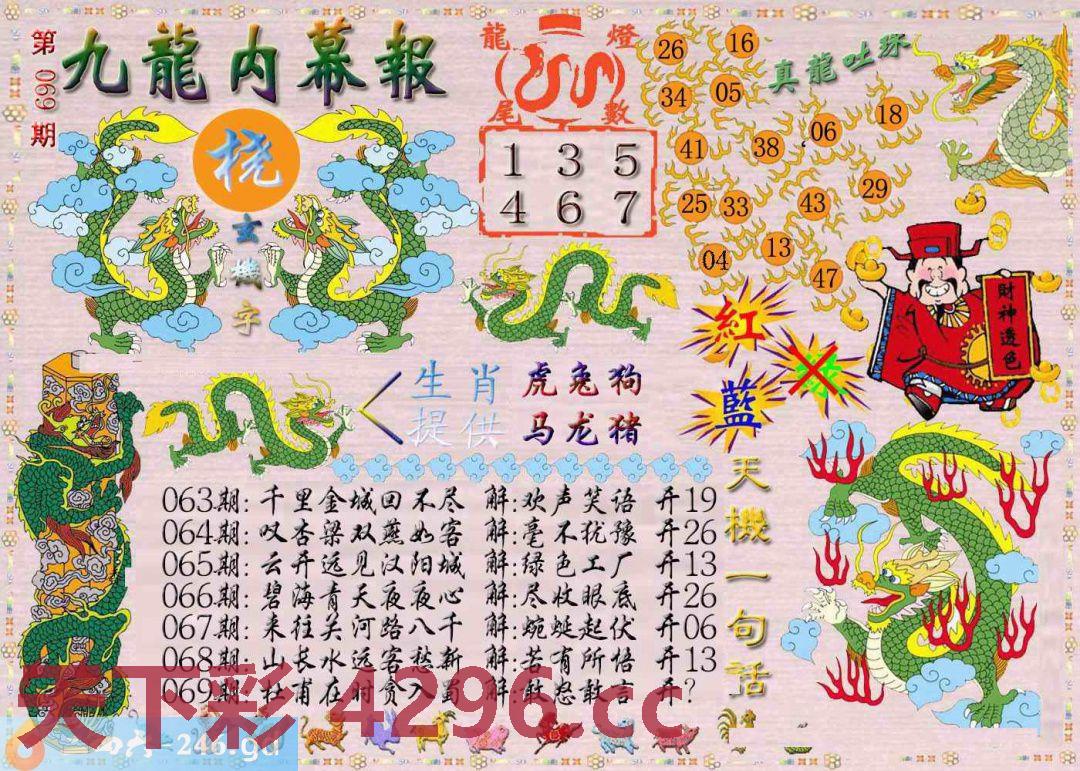 第069期
九龍内幕報
桡
玄機字
龍燈
尾數
1 3 5
4 6 7
真龍吐珠
26 16
34 05
41 38 06 18
25 33 43 29
04 13 47
紅
藍
財神透色
生肖
提供
虎兔狗
马龙猪
063期:千里金城回不尽 解:欢声笑语 开19
064期:叹杏梁双燕如客 解:毫不犹豫 开26
065期:云开远见汉阳城 解:绿色工厂 开13
066期:碧海青天夜夜心 解:尽收眼底 开26
067期:来往关河路八千 解:蜿蜒起伏 开06
068期:山长水远客愁新 解:若有所悟 开13
069期:杜甫在时贪入蜀 解:敢怒敢言 开?
天機一句话
天下彩 4296.cc
=246.gd